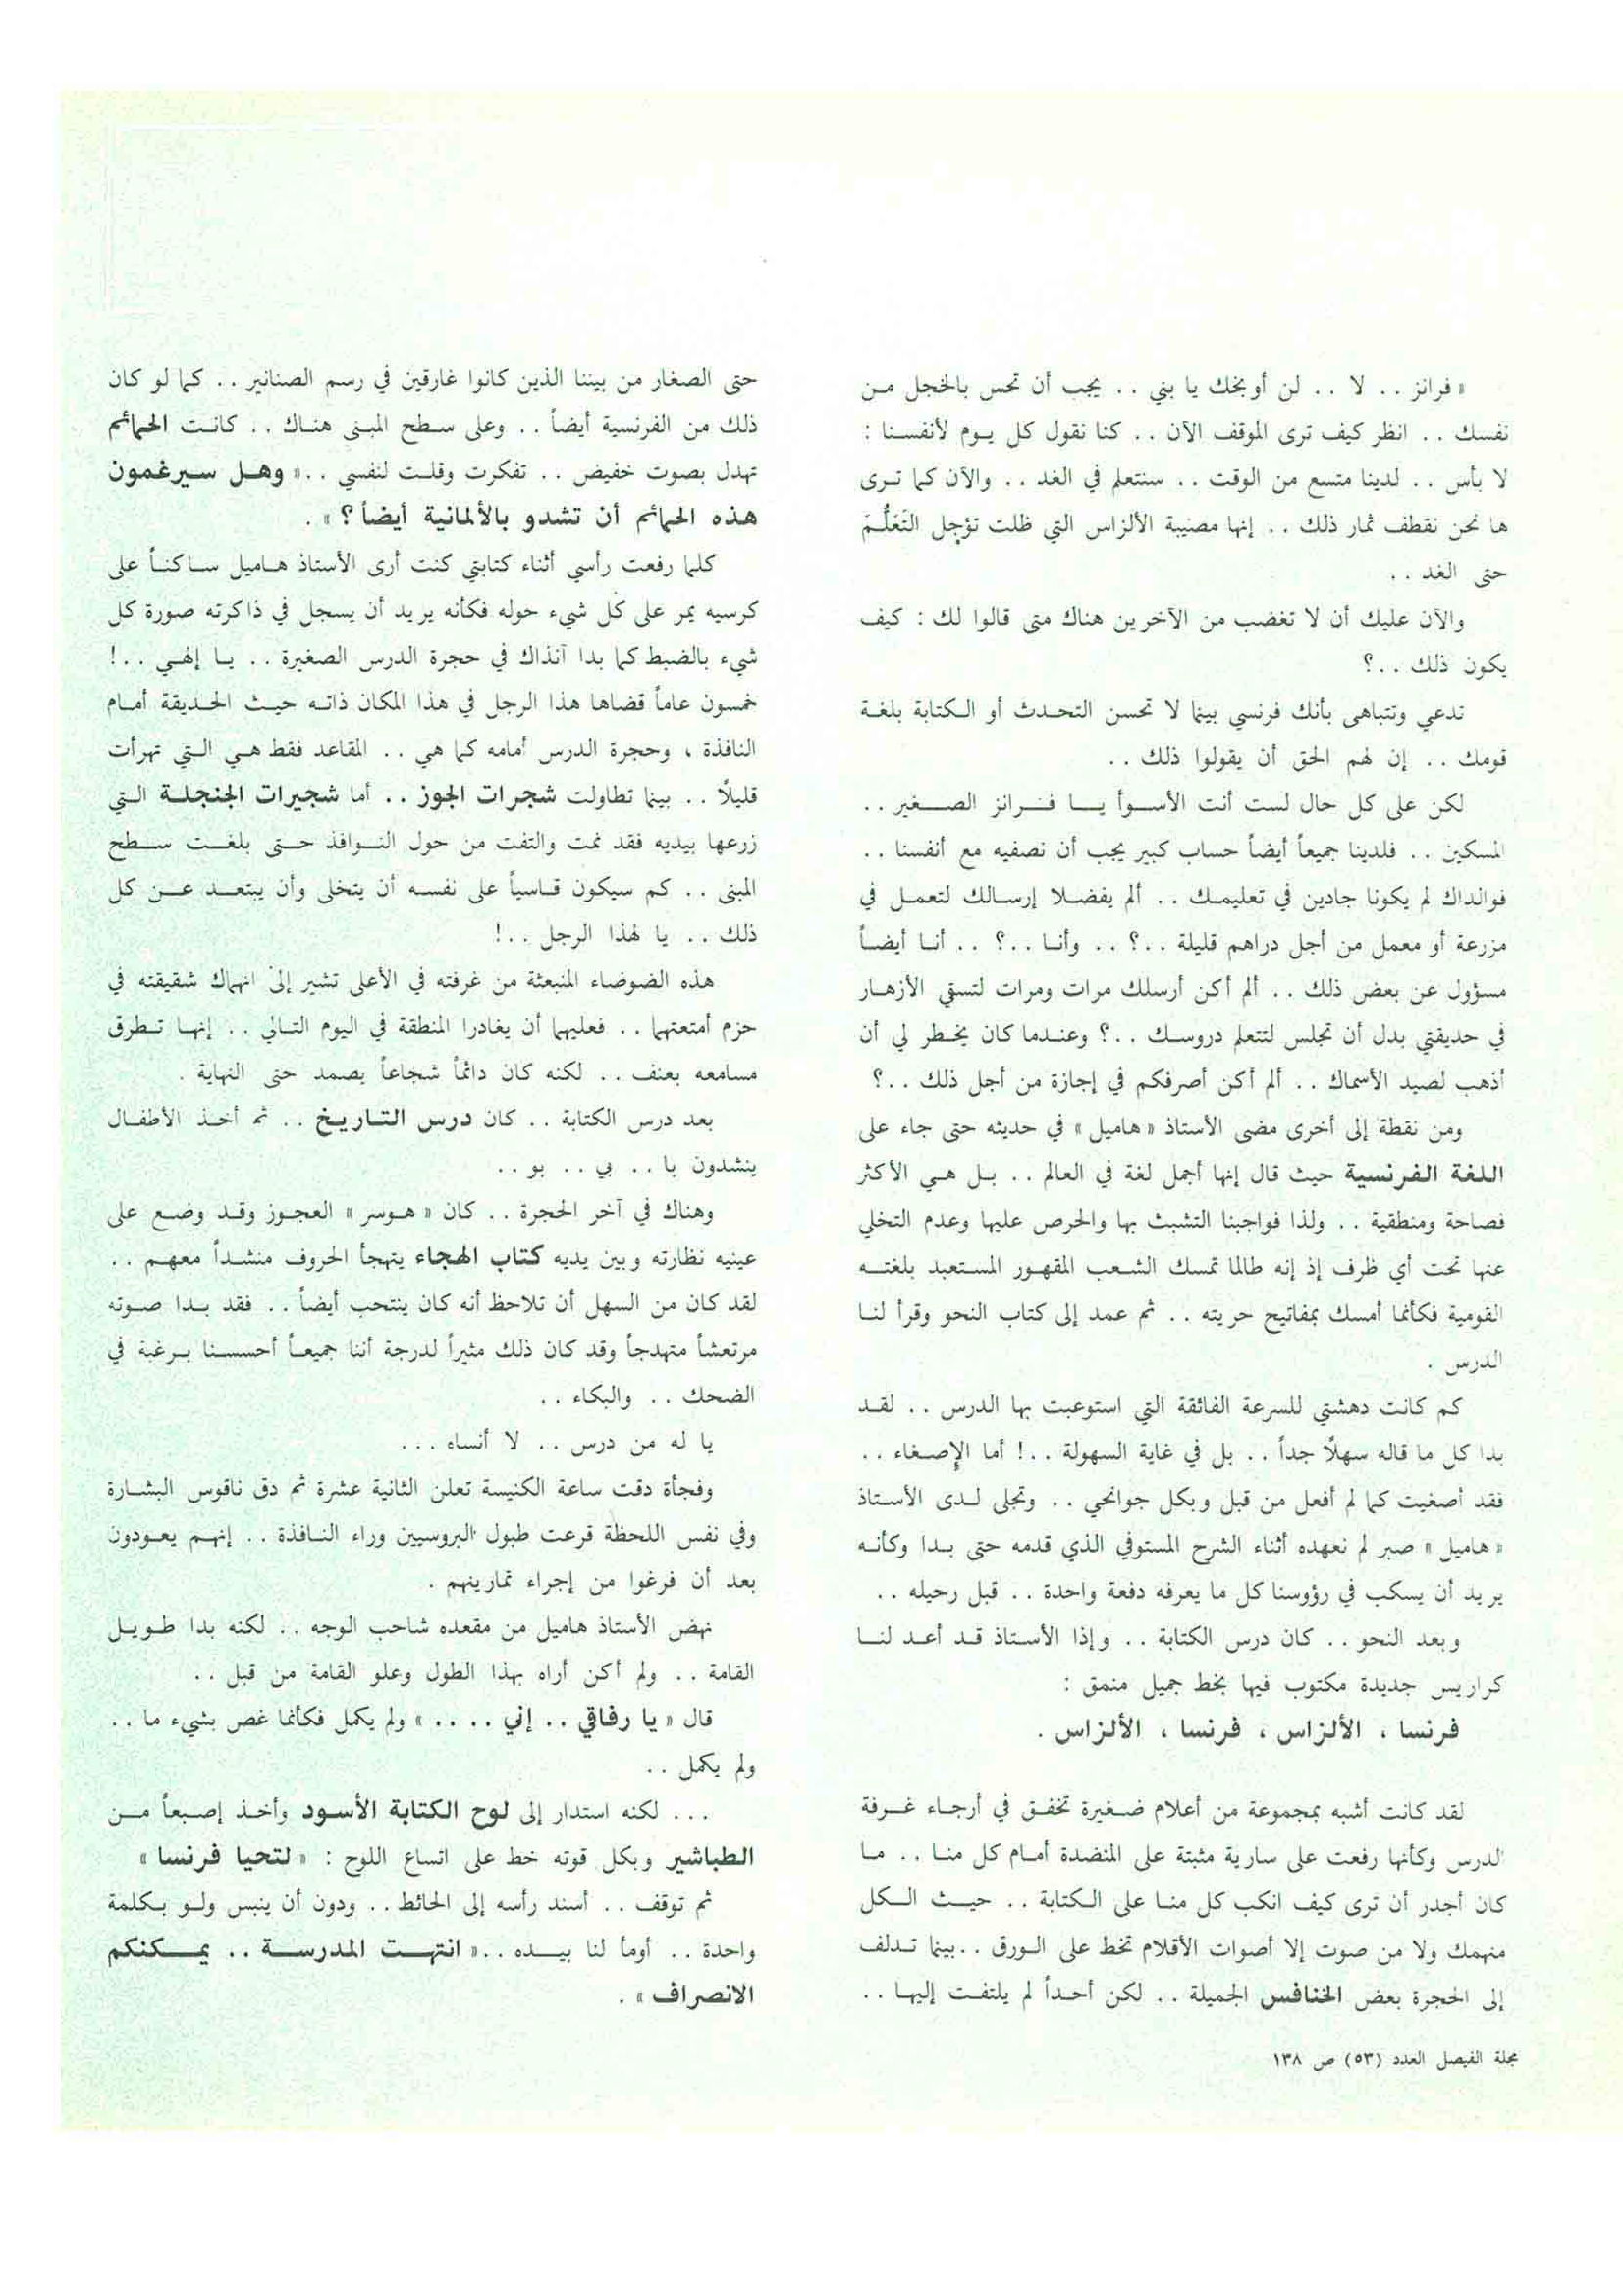 « فرانز . . لا . . لن أوبخك يا بني . . يجب أن تحس بالخجل من
نفسك . . انظر كيف ترى الموقف الآن . . كنا نقول كل يوم لأنفسنا :
لا بأس . . لدينا متسع من الوقت . . سنتعلم في الغد . . والآن كما ترى
ها نحن نقطف ثمار ذلك . . إنها مصيبة الألزاس التي ظلت تؤجل التَعَلُّمَ
حتى الغد . .
والآن عليك أن لا تغضب من الآخرين هناك متى قالوا لك : كيف
يكون ذلك . . ؟
تدعي وتتباهى بأنك فرنسي بينما لا تحسن التحدث أو الكتابة بلغة
قومك . . إن لهم الحق أن يقولوا ذلك . .
لكن على كل حال لست أنت الأسوأ يا فرانز الصغير . .
المسكين . . فلدينا جميعاً أيضاً حساب كبير يجب أن نصفيه مع أنفسنا . .
فوالداك لم يكونا جادين في تعليمك . . ألم يفضلا إرسالك لتعمل في
مزرعة أو معمل من أجل دراهم قليلة . . ؟ . . وأنا . . ؟ . . أنا أيضاً
مسؤول عن بعض ذلك . . ألم أكن أرسلك مرات ومرات لتسقي الأزهار
في حديقتي بدل أن تجلس لتتعلم دروسك . . ؟ وعندما كان يخطر لي أن
أذهب لصيد الأسماك . . ألم أكن أصرفكم في إجازة من أجل ذلك . . ؟
ومن نقطة إلى أخرى مضى الأستاذ « هاميل » في حديثه حتى جاء على
اللغة الفرنسية حيث قال إنها أجمل لغة في العالم . . بل هي الأكثر
فصاحة ومنطقية . . ولذا فواجبنا التشبث بها والحرص عليها وعدم التخلي
عنها تحت أي ظرف إذ إنه طالما تمسك الشعب المقهور المستعبد بلغته
القومية فكأنما أمسك بمفاتيح حريته . . ثم عمد إلى كتاب النحو وقرأ لنا
الدرس .
كم كانت دهشتي للسرعة الفائقة التي استوعبت بها الدرس . . لقد
بدا كل ما قاله سهلاً جداً . . بل في غاية السهولة . . ! أما الإصغاء . .
فقد أصغيت كما لم أفعل من قبل وبكل جوانحي . . وتجلى لدى الأستاذ
« هاميل » صبر لم نعهده أثناء الشرح المستوفي الذي قدمه حتى بدا وكأنه
يريد أن يسكب في رؤوسنا كل ما يعرفه دفعة واحدة . . قبل رحيله . .
وبعد النحو . . كان درس الكتابة . . وإذا الأستاذ قد أعد لنا
كراريس جديدة مكتوب فيها بخط جميل منمق :
فرنسا ، الألزاس ، فرنسا ، الألزاس .
لقد كانت أشبه بمجموعة من أعلام صغيرة تخفق في أرجاء غرفة
الدرس وكأنها رفعت على سارية مثبتة على المنضدة أمام كل منا . . ما
كان أجدر أن ترى كيف انكب كل منا على الكتابة . . حيث الكل
منهمك ولا من صوت إلا أصوات الأقلام تخط على الورق . . بينما تدلف
إلى الحجرة بعض الخنافس الجميلة . . لكن أحداً لم يلتفت إليها . .
مجلة الفيصل العدد (٥٣) ص ١٣٨
حتى الصغار من بيننا الذين كانوا غارقين في رسم الصنانير . . كما لو كان
ذلك من الفرنسية أيضاً . . وعلى سطح المبنى هناك . . كانت الحمائم
تهدل بصوت خفيض . . تفكرت وقلت لنفسي . . « وهل سيرغمون
هذه الحمائم أن تشدو بالألمانية أيضاً ؟ » .
كلما رفعت رأسي أثناء كتابتي كنت أرى الأستاذ هاميل ساكناً على
كرسيه يمر على كل شيء حوله فكأنه يريد أن يسجل في ذاكرته صورة كل
شيء بالضبط كما بدا آنذاك في حجرة الدرس الصغيرة . . يا إلهي . . !
خمسون عاماً قضاها هذا الرجل في هذا المكان ذاته حيث الحديقة أمام
النافذة ، وحجرة الدرس أمامه كما هي . . المقاعد فقط هي التي تهرأت
قليلاً . . بينما تطاولت شجرات الجوز . . أما شجيرات الجنجلة التي
زرعها بيديه فقد نمت والتفت من حول النوافذ حتى بلغت سطح
المبنى . . كم سيكون قاسياً على نفسه أن يتخلى وأن يبتعد عن كل
ذلك . . يا لهذا الرجل . . !
هذه الضوضاء المنبعثة من غرفته في الأعلى تشير إلى انهماك شقيقته في
حزم أمتعتهما . . فعليهما أن يغادرا المنطقة في اليوم التالي . . إنها تطرق
مسامعه بعنف . . لكنه كان دائماً شجاعاً يصمد حتى النهاية .
بعد درس الكتابة . . كان درس التاريخ . . ثم أخذ الأطفال
ينشدون با . . بي . . بو . .
وهناك في آخر الحجرة . . كان « هوسر » العجوز وقد وضع على
عينيه نظارته وبين يديه كتاب الهجاء يتهجأ الحروف منشداً معهم . .
لقد كان من السهل أن تلاحظ أنه كان ينتحب أيضاً . . فقد بدا صوته
مرتعشاً متهدجاً وقد كان ذلك مثيراً لدرجة أننا جميعاً أحسسنا برغبة في
الضحك . . والبكاء . .
يا له من درس . . لا أنساه . . .
وفجأة دقت ساعة الكنيسة تعلن الثانية عشرة ثم دق ناقوس البشارة
وفي نفس اللحظة قرعت طبول البروسيين وراء النافذة . . إنهم يعودون
بعد أن فرغوا من إجراء تمارينهم .
نهض الأستاذ هاميل من مقعده شاحب الوجه . . لكنه بدا طويل
القامة . . ولم أكن أراه بهذا الطول وعلو القامة من قبل . .
قال « يا رفاقي . . إني . . . . » ولم يكمل فكأنما غص بشيء ما . .
ولم يكمل . .
. . . لكنه استدار إلى لوح الكتابة الأسود وأخذ إصبعاً من
الطباشير وبكل قوته خط على اتساع اللوح : « لتحيا فرنسا »
ثم توقف . . أسند رأسه إلى الحائط . . ودون أن ينبس ولو بكلمة
واحدة . . أومأ لنا بيده . . « انتهت المدرسة . . يمكنكم
الانصراف » .